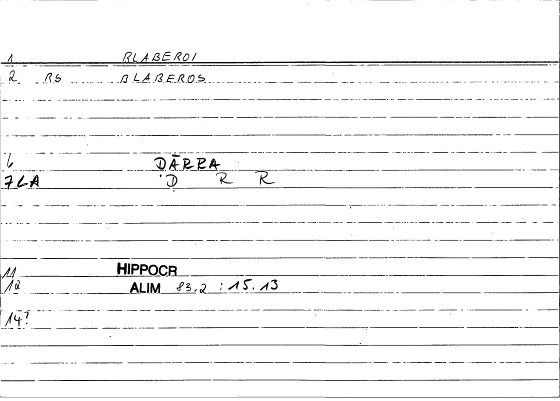 1 BLABEROI
2 RS BLABEROS
6 DĀRRA
7 LA ḌRR
11 HIPPOCR
12 ALIM 83,2 : 15.13
14?